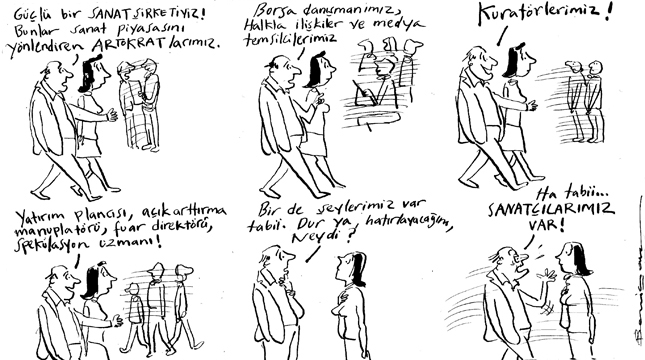 Güçlü bir SANAT ŞİRKETİYİZ!
Bunlar sanat piyasasını
yönlendiren ARTOKRATlarımız.
Borsa danışmanımız,
Halkla ilişkiler ve medya
temsilcilerimiz
Kuratörlerimiz!
Yatırım plancısı, açık arttırma
manuplatörü, fuar direktörü,
spekülasyon uzmanı!
Bir de şeylerimiz var
tabii. Dur ya, hatırlayacağım,
Neydi?
Ha tabii...
SANATÇILARIMIZ
VAR!